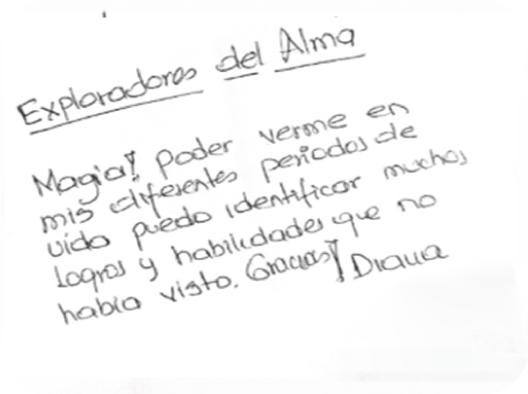 Exploradores del Alma
Magia! Poder verme en
mis diferentes periodos de
vida puedo identificar muchos
logros y habilidades que no
había visto. Gracias! Diana